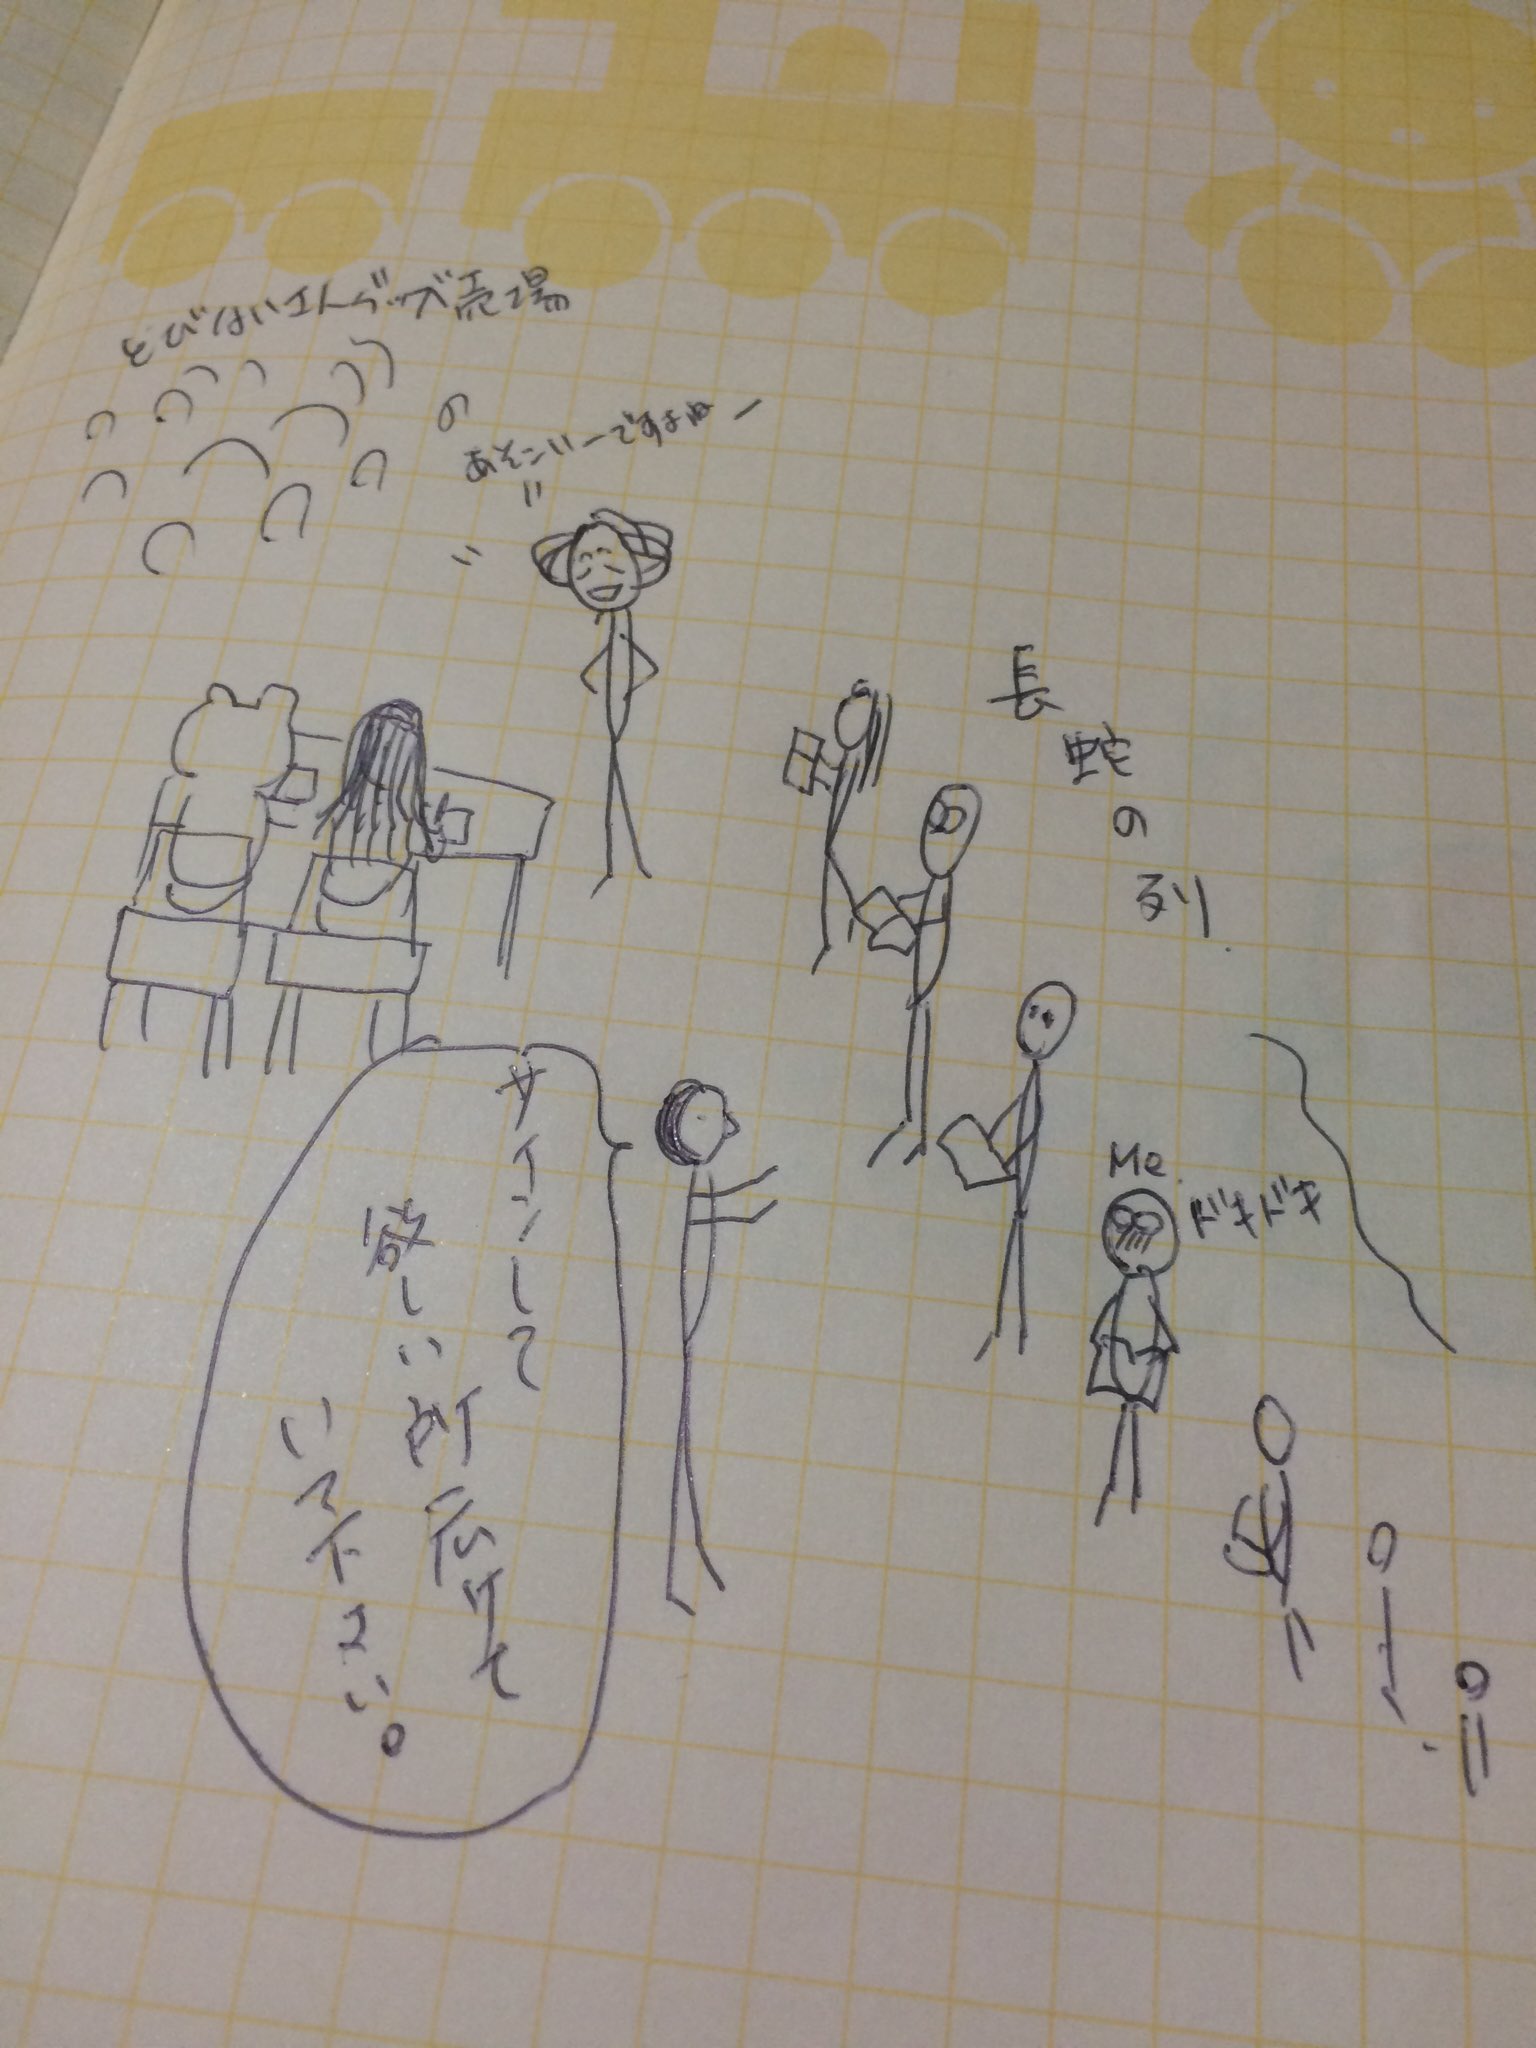 とびはいさんグッズ売場
の
あそこいーですよねー
長蛇の列
Me
ドキドキ
サインして
欲しい所広げて
いて下さい。